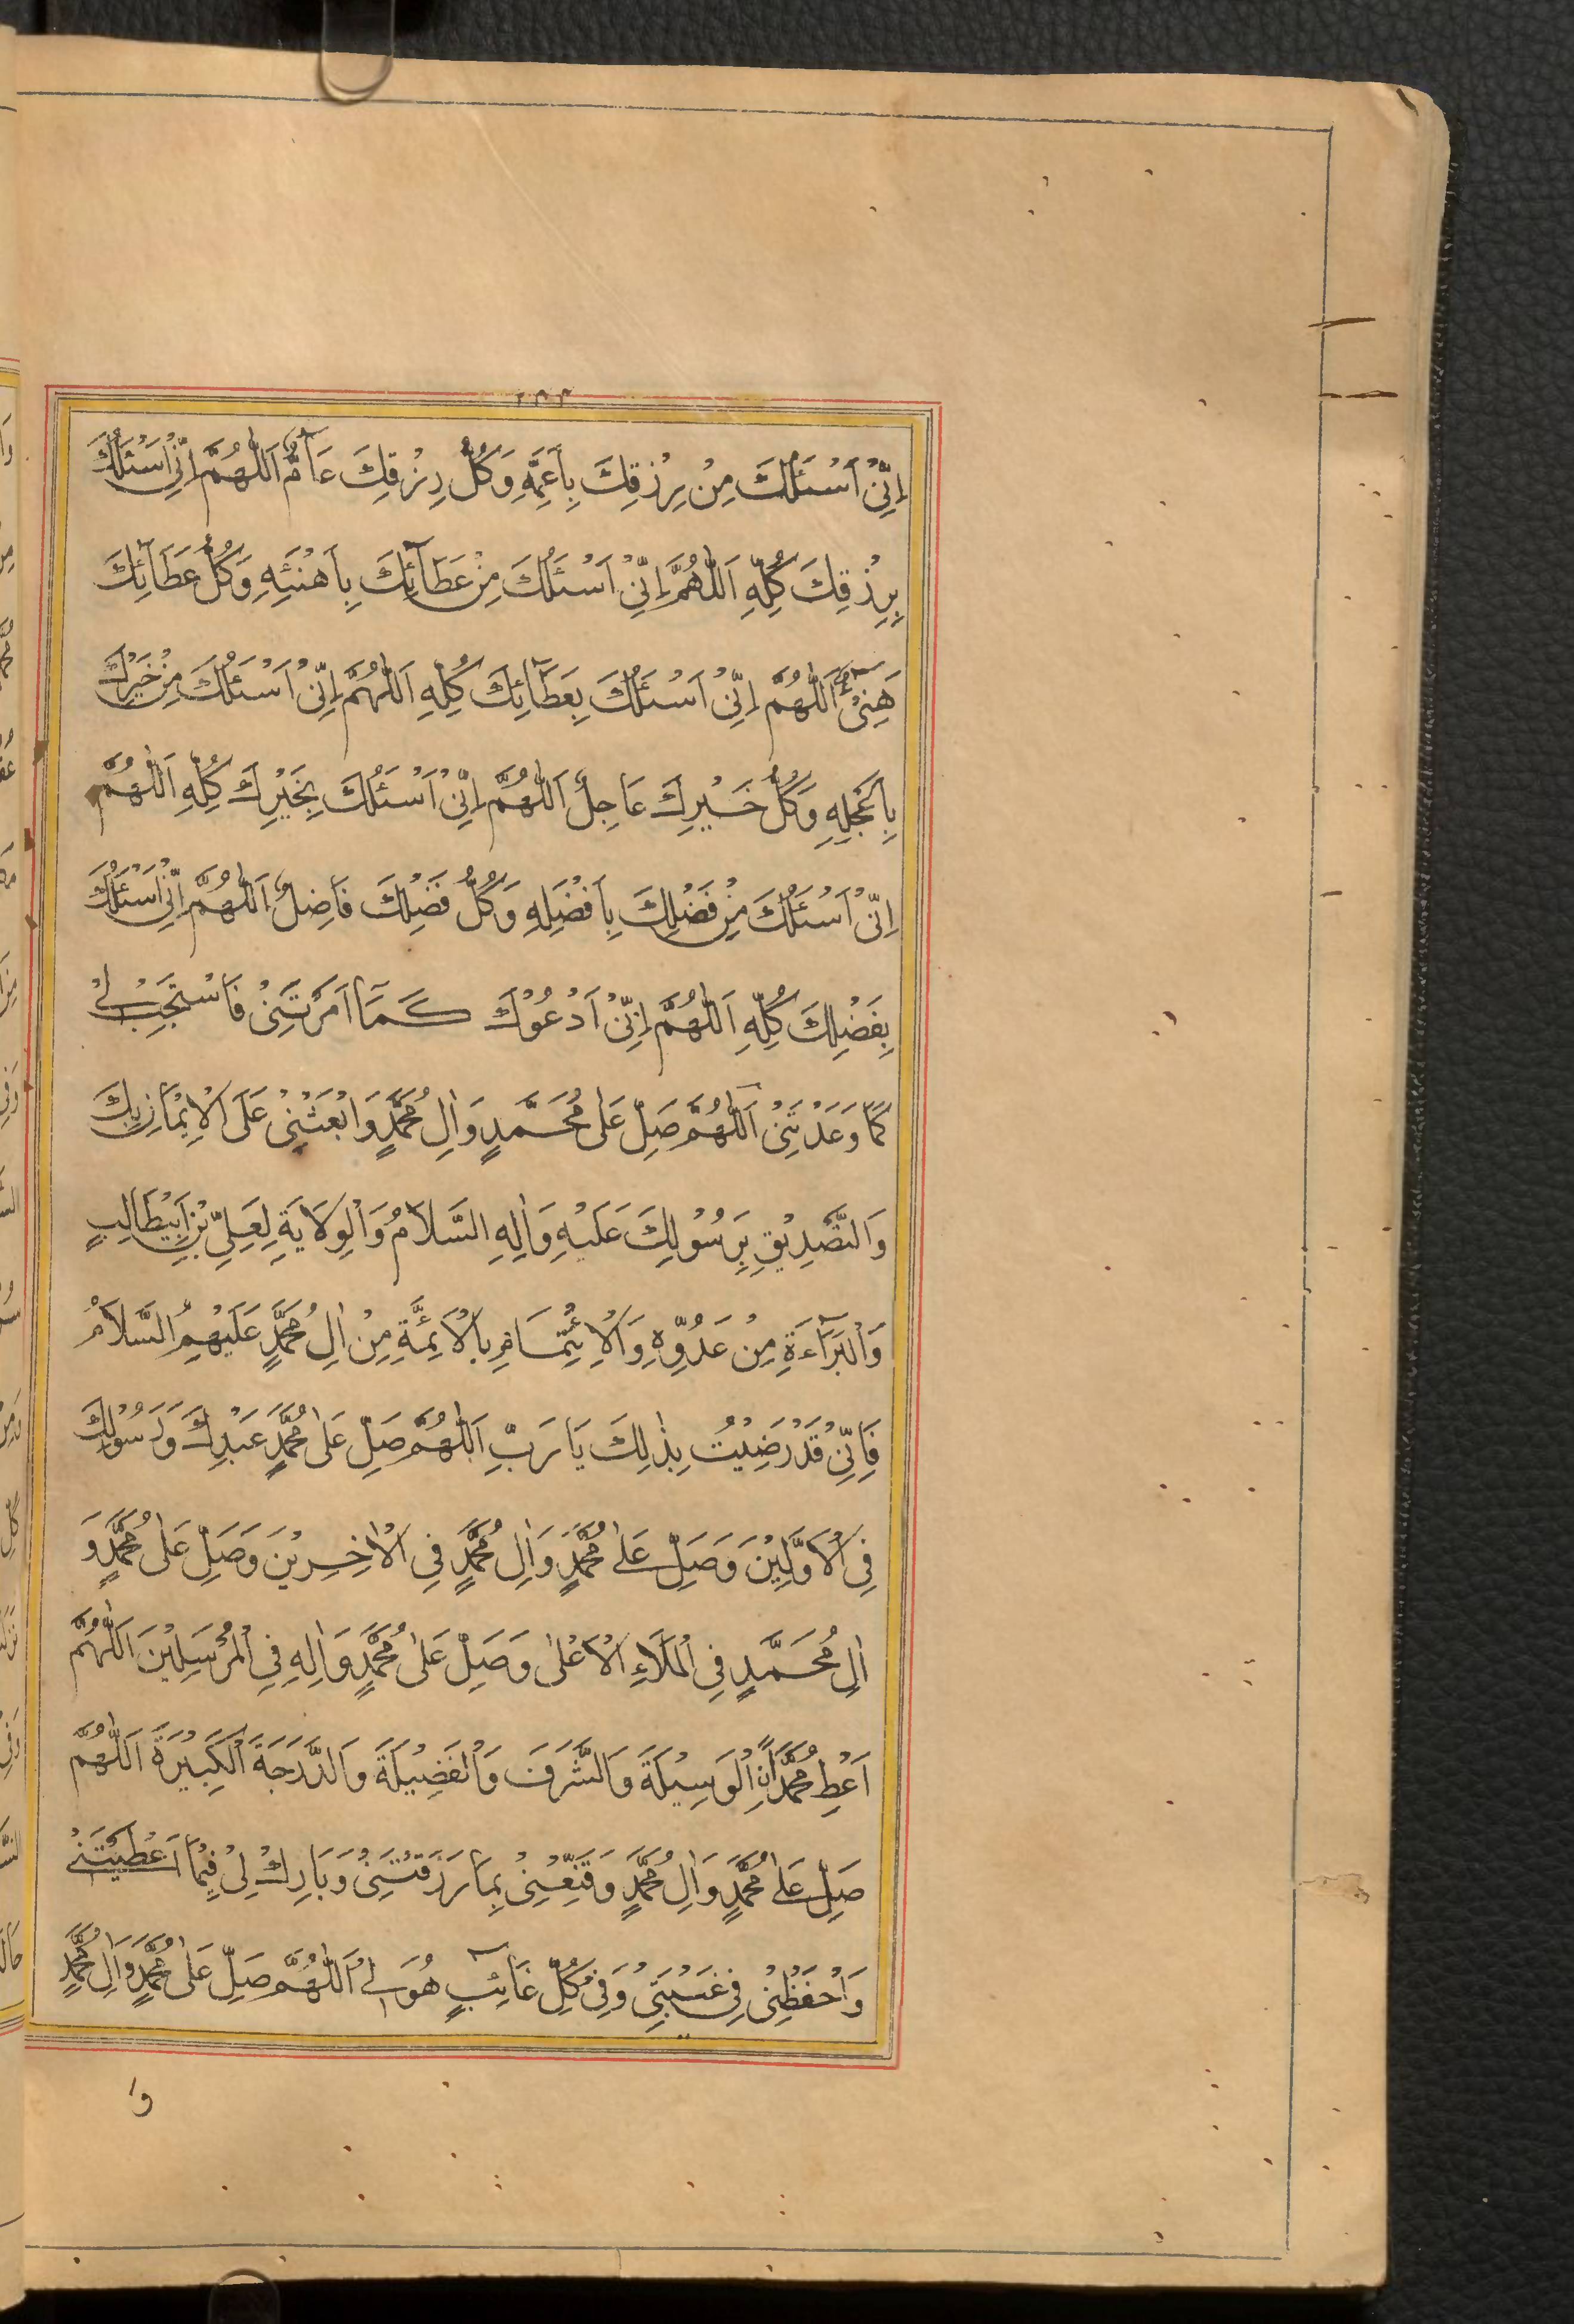 اِنِّیْ اَسْئَلُكَ مِنْ رِزْقِكَ بِاَعَمِّهِ وَكُلُّ رِزْقِكَ عَآمٌّ اَللّٰهُمَّ اِنِّیْ اَسْئَلُكَ
بِرِزْقِكَ كُلِّهِ اَللّٰهُمَّ اِنِّیْ اَسْئَلُكَ مِنْ عَطَآئِكَ بِاَهْنَئِهِ وَكُلُّ عَطَآئِكَ
هَنِیْٓءٌ اَللّٰهُمَّ اِنِّیْ اَسْئَلُكَ بِعَطَآئِكَ كُلِّهِ اَللّٰهُمَّ اِنِّیْ اَسْئَلُكَ مِنْ خَيْرِكَ
بِاَعْجَلِهِ وَكُلُّ خَيْرِكَ عَاجِلٌ اَللّٰهُمَّ اِنِّیْ اَسْئَلُكَ بِخَيْرِكَ كُلِّهِ اَللّٰهُمَّ
اِنِّیْ اَسْئَلُكَ مِنْ فَضْلِكَ بِاَفْضَلِهِ وَكُلُّ فَضْلِكَ فَاضِلٌ اَللّٰهُمَّ اِنِّیْ اَسْئَلُكَ
بِفَضْلِكَ كُلِّهِ اَللّٰهُمَّ اِنِّیْ اَدْعُوْكَ كَمَآ اَمَرْتَنِیْ فَاسْتَجِبْ لِیْ
كَمَا وَعَدْتَنِیْ اَللّٰهُمَّ صَلِّ عَلٰی مُحَمَّدٍ وَاٰلِ مُحَمَّدٍ وَابْعَثْنِیْ عَلَی الْاِيْمَانِ بِكَ
وَالتَّصْدِيْقِ بِرَسُوْلِكَ عَلَيْهِ وَاٰلِهِ السَّلَامُ وَالْوِلَايَةِ لِعَلِیِّ بْنِ اَبِيْطَالِبٍ
وَالْبَرَآءَةِ مِنْ عَدُوِّهِ وَالْاِئْتِمَامِ بِالْاَئِمَّةِ مِنْ اٰلِ مُحَمَّدٍ عَلَيْهِمُ السَّلَامُ
فَاِنِّیْ قَدْ رَضِيْتُ بِذٰلِكَ يَا رَبِّ اَللّٰهُمَّ صَلِّ عَلٰی مُحَمَّدٍ عَبْدِكَ وَرَسُوْلِكَ
فِی الْاَوَّلِيْنَ وَصَلِّ عَلٰی مُحَمَّدٍ وَاٰلِ مُحَمَّدٍ فِی الْاٰخِرِيْنَ وَصَلِّ عَلٰی مُحَمَّدٍ وَ
اٰلِ مُحَمَّدٍ فِی الْمَلَاءِ الْاَعْلٰی وَصَلِّ عَلٰی مُحَمَّدٍ وَاٰلِهِ فِی الْمُرْسَلِيْنَ اَللّٰهُمَّ
اَعْطِ مُحَمَّدًانِ الْوَسِيْلَةَ وَالشَّرَفَ وَالْفَضِيْلَةَ وَالدَّرَجَةَ الْكَبِيْرَةَ اَللّٰهُمَّ
صَلِّ عَلٰی مُحَمَّدٍ وَاٰلِ مُحَمَّدٍ وَقَنِّعْنِیْ بِمَا رَزَقْتَنِیْ وَبَارِكْ لِیْ فِيْمَا اَعْطَيْتَنِیْ
وَاحْفَظْنِیْ فِیْ غَيْبَتِیْ وَفِیْ كُلِّ غَآئِبٍ هُوَ لِیْ اَللّٰهُمَّ صَلِّ عَلٰی مُحَمَّدٍ وَاٰلِ مُحَمَّدٍ
وَ